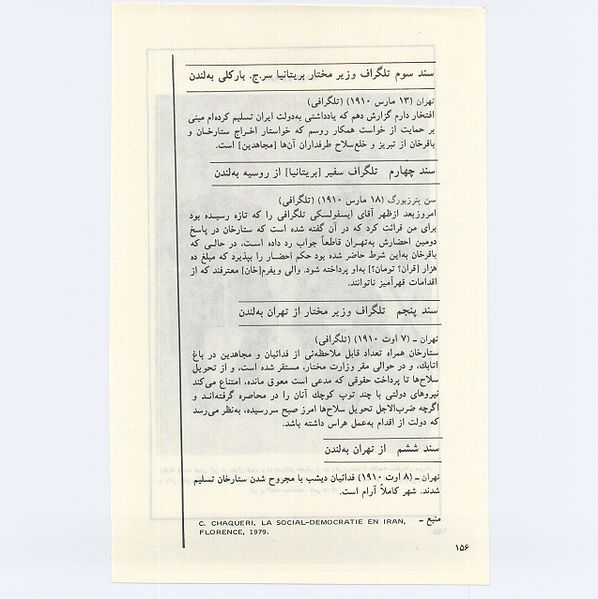 سند سوم تلگراف وزیر مختار بریتانیا سر.ج. بارکلی به‌لندن
تهران (۱۳ مارس ۱۹۱۰) (تلگرافی)
افتخار دارم گزارش دهم که یادداشتی به‌دولت ایران تسلیم کرده‌ام مبنی
بر حمایت از خواست همکار روسم که خواستار اخراج ستارخان و
باقرخان از تبریز و خلع‌سلاح طرفداران آن‌ها [مجاهدین] است.
سند چهارم تلگراف سفیر [بریتانیا] از روسیه به‌لندن
سن پترزبورگ (۱۸ مارس ۱۹۱۰) (تلگرافی)
امروزبعد ازظهر آقای ایسفولسکی تلگرافی را که تازه رسیـده بود
برای من قرائت کرد که در آن گفته شده است که ستارخان در پاسخ
دومین احضارش به‌تهـران قاطعاً جواب رد داده اسـت، در حالـی که
باقرخان به‌این شرط حاضر شده بود حکم احضـار را بپذیرد که مبلغ ده
هزار [قران؟ تومان؟] به‌او پرداخته شود. والی ویفرم[خان] معترفند که از
اقدامات قهرآمیز ناتوانند.
سند پنجم تلگراف وزیر مختار از تهران به‌لندن
تهران ـ (۷ اوت ۱۹۱۰) (تلگرافی)
ستارخان همراه تعداد قابل ملاحظه‌ئی از فدائیان و مجاهدین در باغ
اتابك، و در حوالی مقر وزارت مختار، مستقر شده است، و از تحویل
سلاح‌ها تا پرداخت حقوقی که مدعی است معوق مانده، امتناع می‌کند
نیروهای دولتی با چند توپ کوچك آنان را در محاصره گرفته‌انـد و
اگرچه ضرب‌الاجل تحویل سلاح‌ها امرز صبح سررسیده، به‌نظر می‌رسد
که دولت از اقدام به‌عمل هراس داشته باشد.
سند ششم از تهران به‌لندن
تهران ـ (۸ اوت ۱۹۱۰) فدائیان دیشب با مجروح شدن ستارخان تسلیم
شدند. شهر کاملاً آرام است.
منبع ـ
C. CHAQUERI, LA SOCIAL-DEMOCRATIE EN IRAN,
FLORENCE, 1979.
۱۵۶